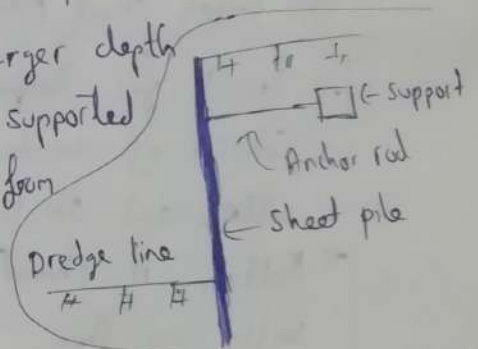 rger depth
supported
from
← Support
Anchor rod
← Sheet pile
Dredge line